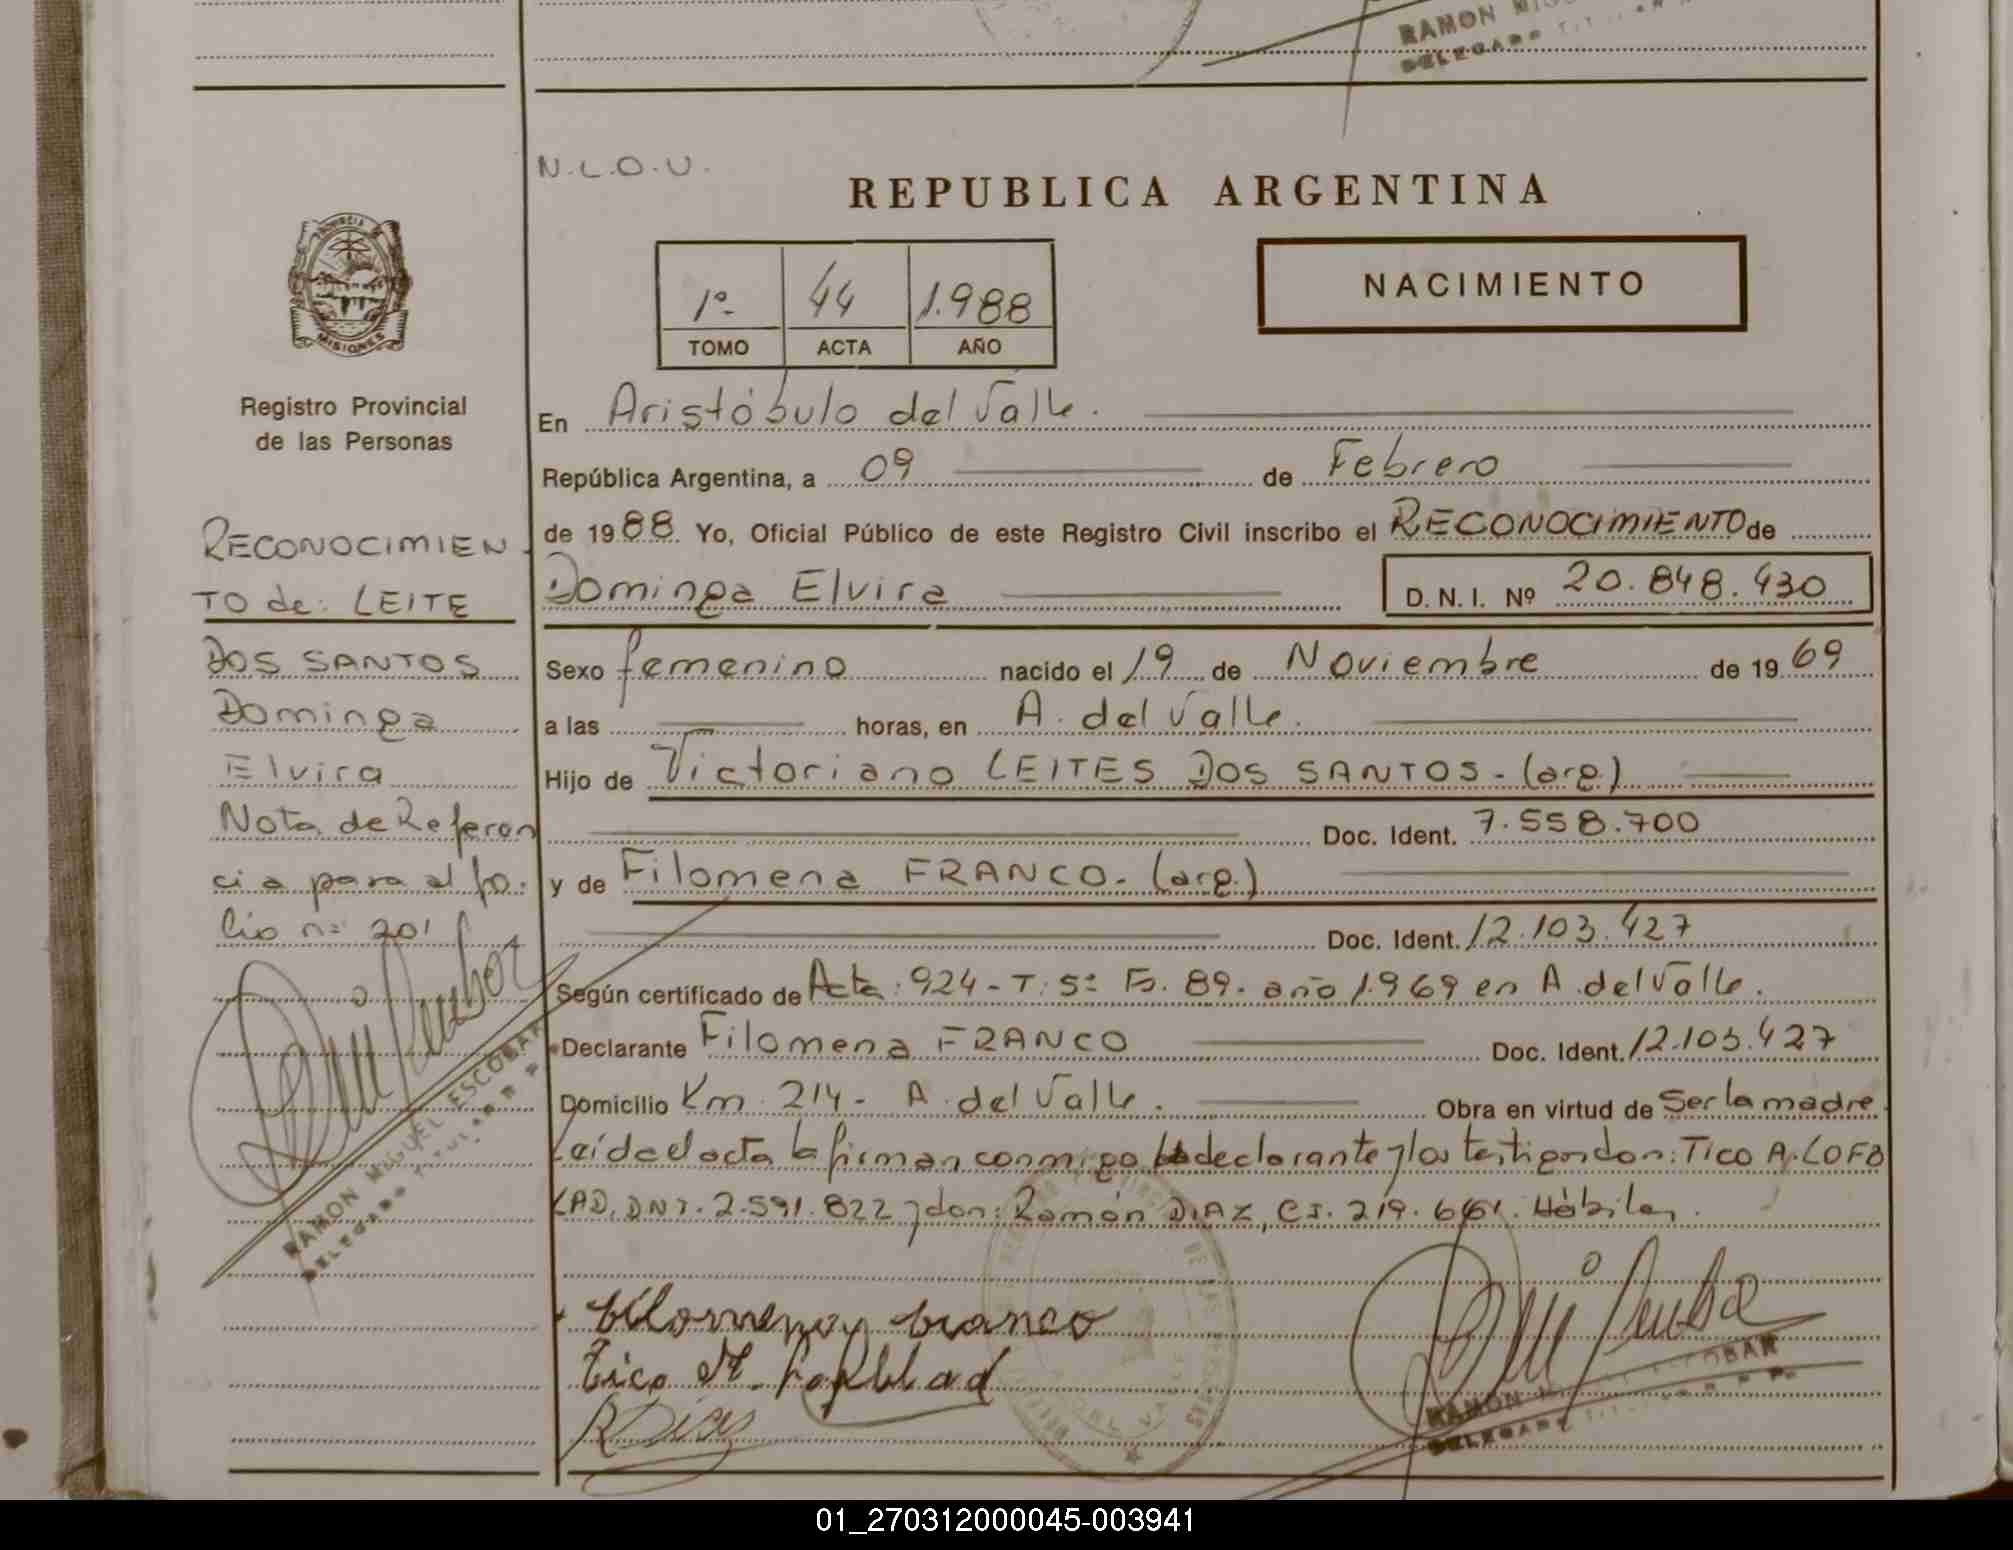 RAMON MIG
DELEGADO TIT
N.L.O.U.
REPUBLICA ARGENTINA
PROVINCIA DE
MISIONES
1º- 44 1.988
TOMO ACTA AÑO
NACIMIENTO
Registro Provincial
de las Personas
RECONOCIMIEN
TO de: LEITE
DOS SANTOS
Dominga
Elvira
Nota de Referen
cia para el fo.
lio nº 201
RAMON MIGUEL ESCOBAR
DELEGADO TITULAR R. P.
En Aristóbulo del Valle.
República Argentina, a 09 de Febrero
de 1988. Yo, Oficial Público de este Registro Civil inscribo el RECONOCIMIENTO de
Dominga Elvira D.N.I. Nº 20.848.430
Sexo femenino nacido el 19 de Noviembre de 1969
a las horas, en A. del Valle.
Hijo de Victoriano LEITES DOS SANTOS.- (arg.)
Doc. Ident. 7.558.700
y de Filomena FRANCO.- (arg.)
Doc. Ident. 12.103.427
Según certificado de Acta: 924- T: 5º Fº. 89. año 1.969 en A. del Valle.
Declarante Filomena FRANCO Doc. Ident. 12.103.427
Domicilio Km. 214- A. del Valle. Obra en virtud de Ser la madre
Leída el acta la firman conmigo la declarante y los testigos don: TICO A. LOFB
LAD, DNI. 2.591.822 y don: Ramón DIAZ, CI. 219.661. Hábiles.
Filomena Franco
Tico A. Lofblad
R Diaz
RAMON MIGUEL ESCOBAR
DELEGADO TITULAR R. P.
01_270312000045-003941